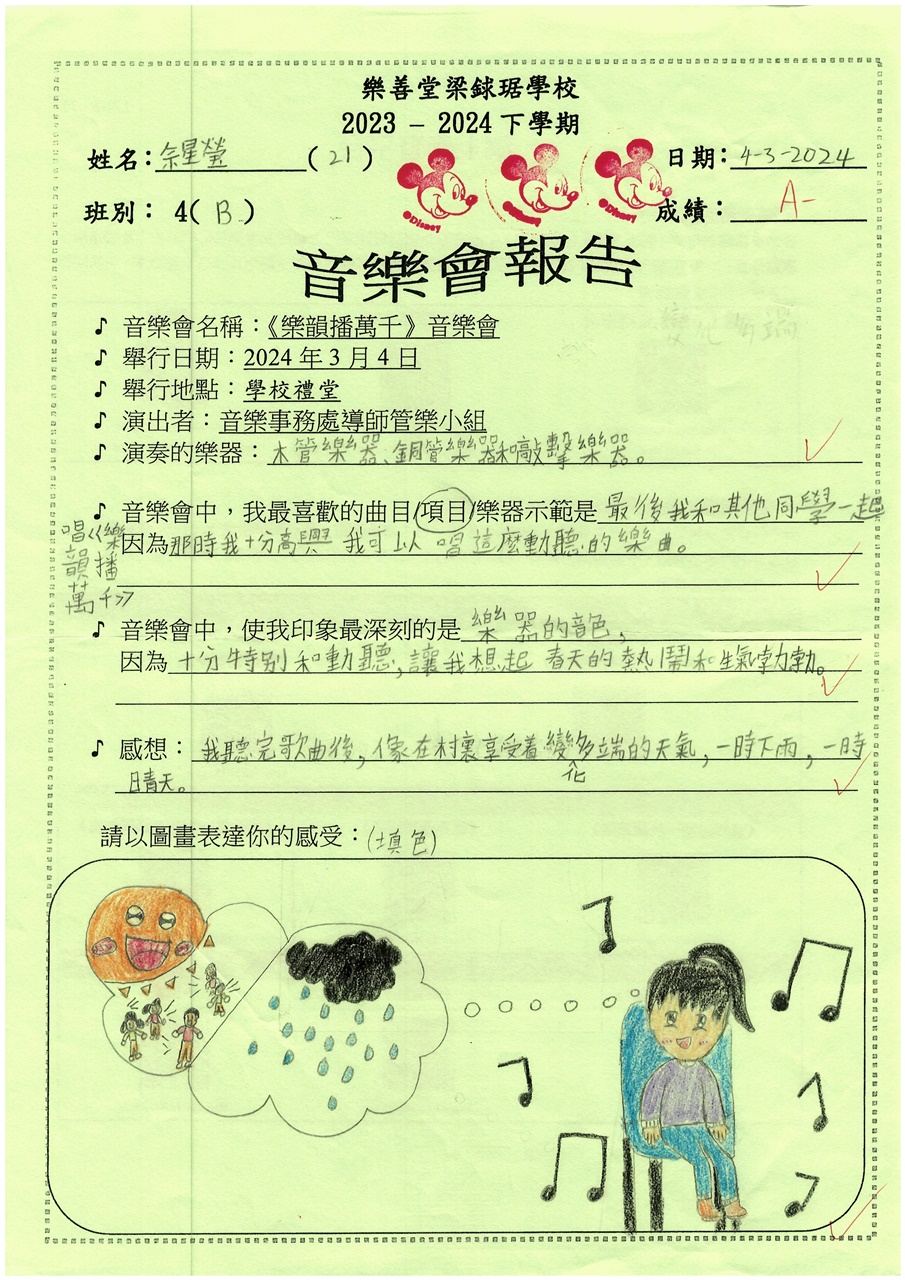 樂善堂梁銶琚學校
2023 – 2024 下學期
姓名：余星瑩 (21) 日期：4-3-2024
班別： 4( B ) 成績：A-
©Disney ©Disney ©Disney
音樂會報告
♪ 音樂會名稱：《樂韻播萬千》音樂會
♪ 舉行日期：2024 年 3 月 4 日
♪ 舉行地點：學校禮堂
♪ 演出者：音樂事務處導師管樂小組
♪ 演奏的樂器：木管樂器、銅管樂器和敲擊樂器。
♪ 音樂會中，我最喜歡的曲目/項目/樂器示範是 最後我和其他同學一起
唱《樂
韻播
萬千》
因為那時我十分高興 我可以 唱這麼動聽的樂曲。
♪ 音樂會中，使我印象最深刻的是 樂器的音色，
因為 十分特別和動聽，讓我想起 春天的熱鬧和生氣勃勃。
♪ 感想： 我聽完歌曲後，像在村裏享受着變化多端的天氣，一時下雨，一時
日晴天。
請以圖畫表達你的感受：(填色)